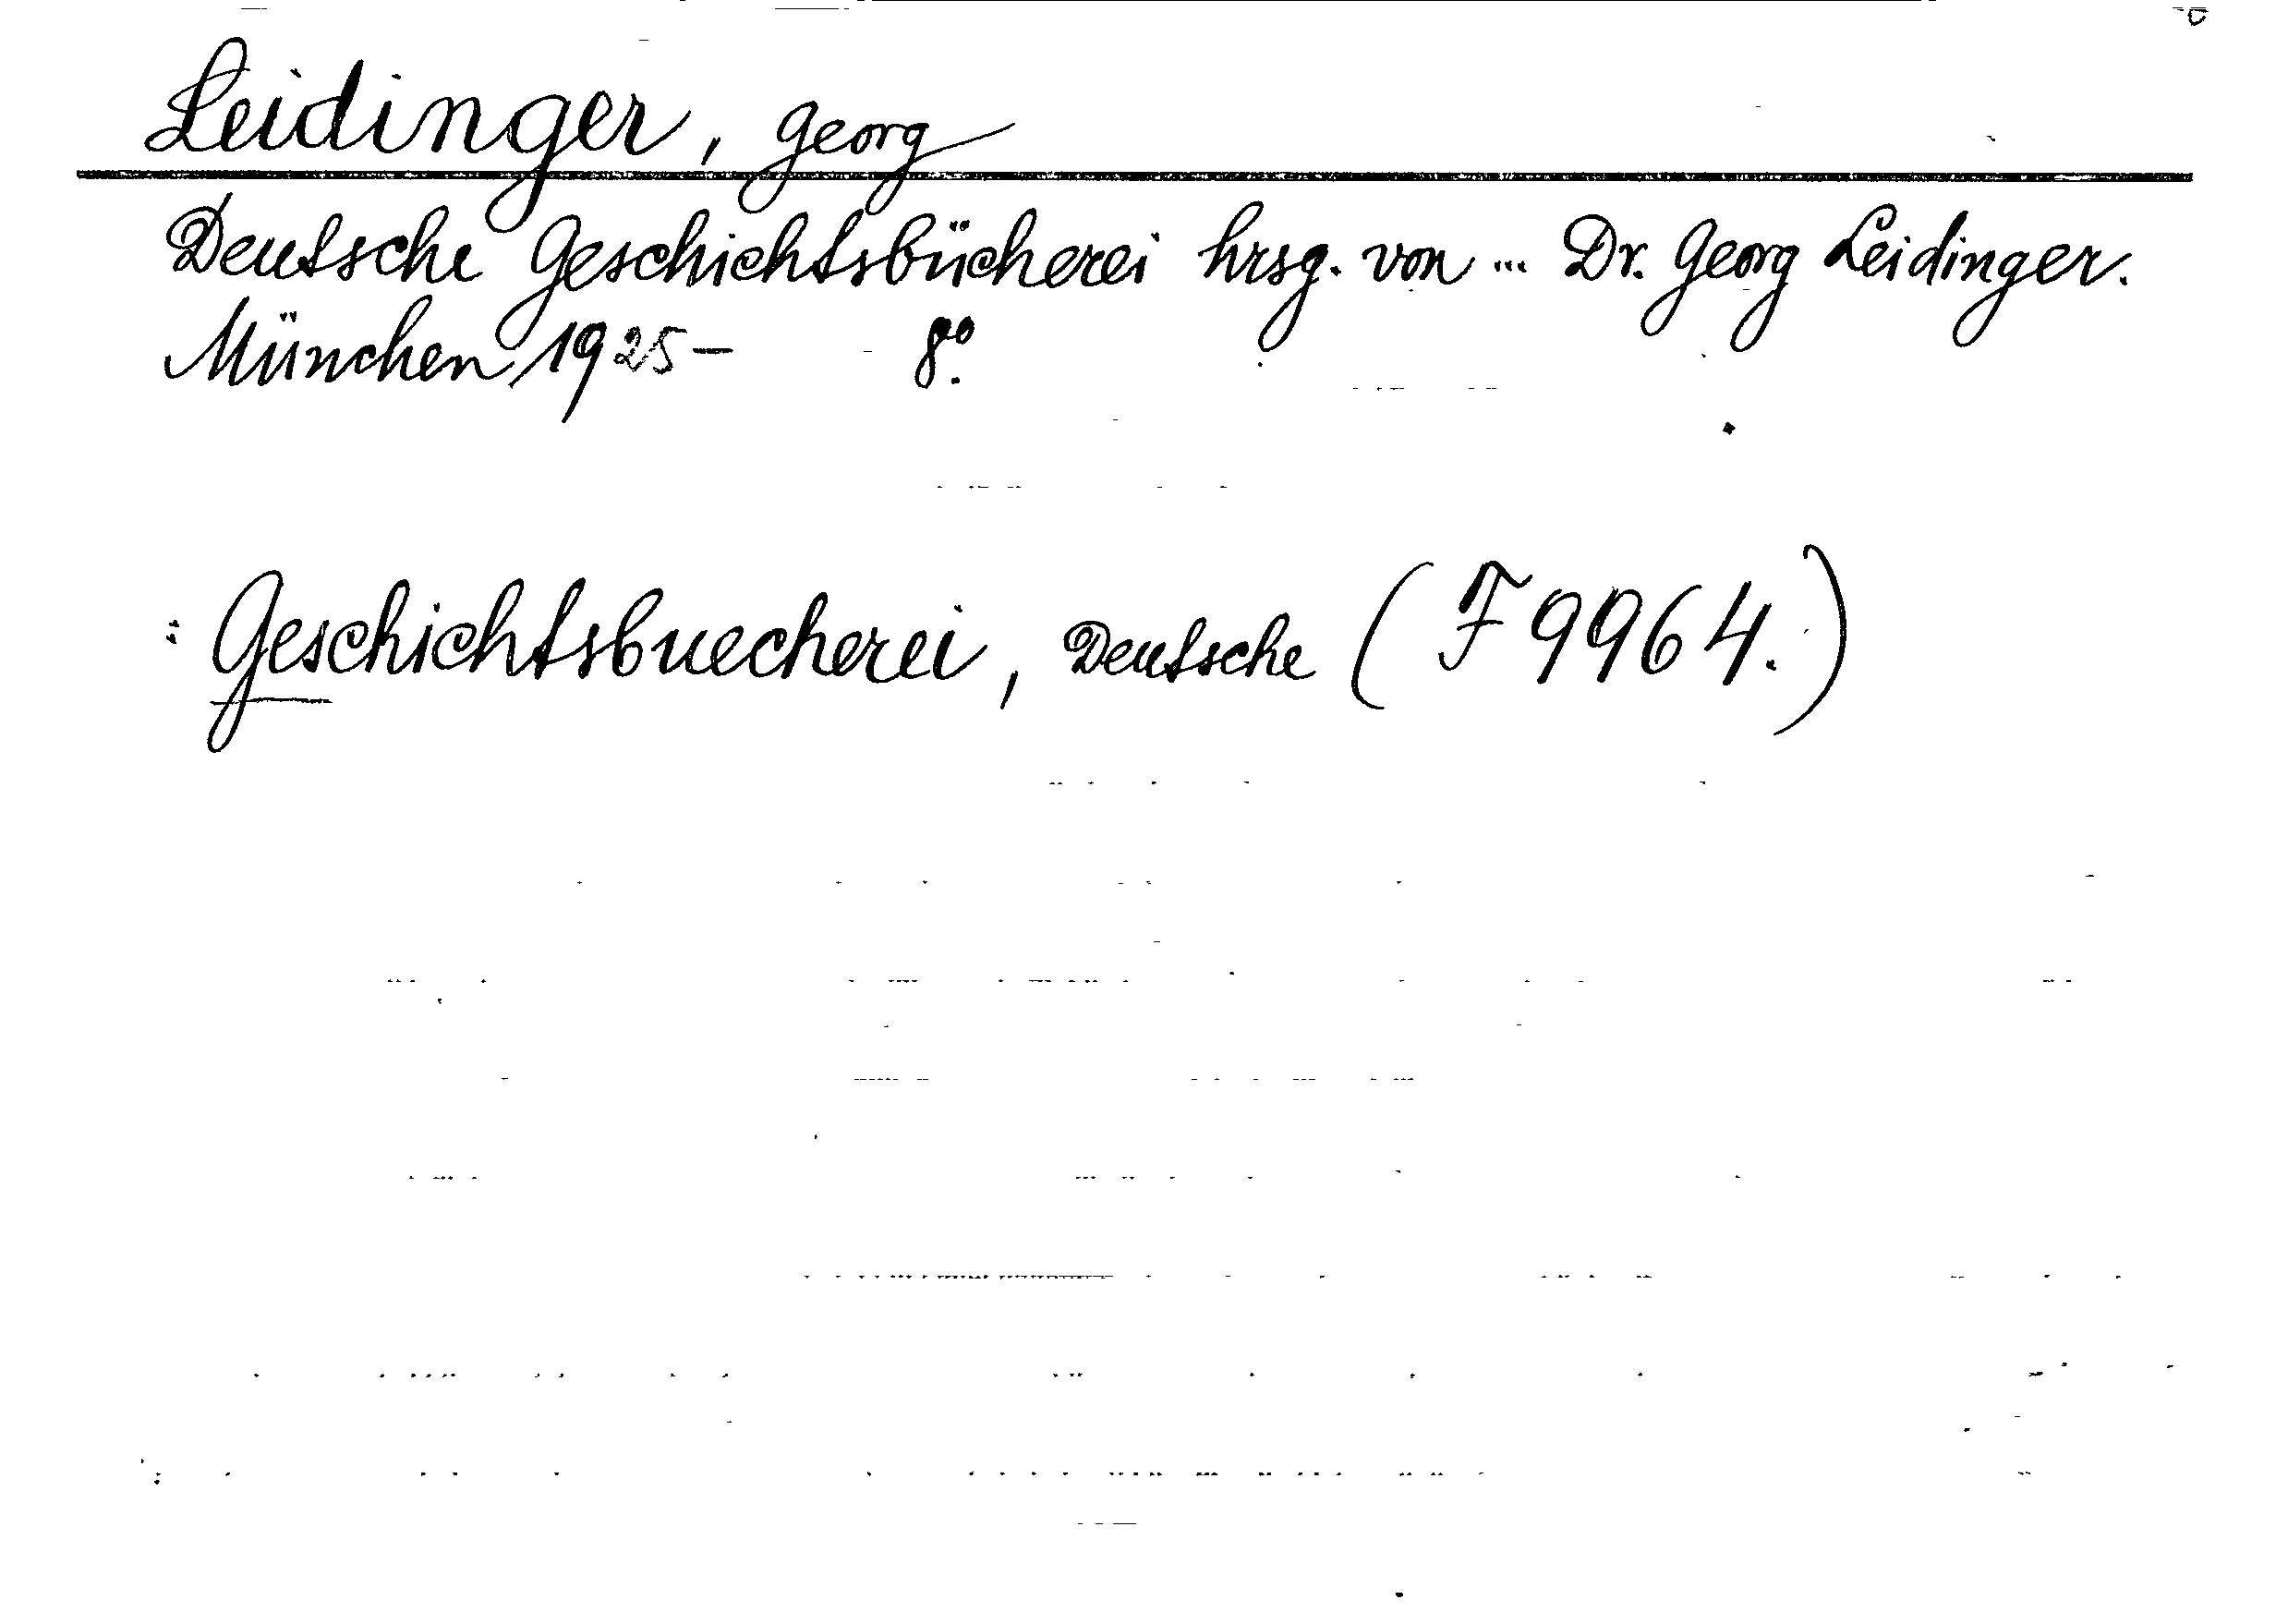 Leidinger, Georg
Deutsche Geschichtsbücherei hrsg. von ... Dr. Georg Leidinger.
München, 1925- 8°.
: Geschichtsbuecherei, Deutsche (F 9964.)